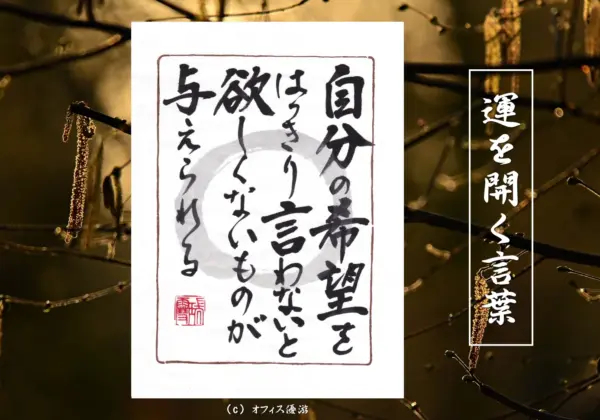 運を開く言葉
自分の希望を
はっきり言わないと
欲しくないものが
与えられる
(C) オフィス優游